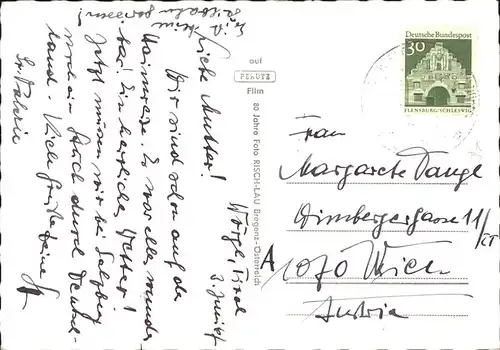 Wörgl, Tirol
2. Juni 67
Liebe Mutter!
Wir sind schon auf der
Heimreise. Es war alles wunder-
bar! Ein herrliches Wetter!
Jetzt müssen wir bei Salzburg
noch ein Stück durch Deutsch-
land. Viele Grüße Deine
auf
PERUTZ
Film
80 Jahre Foto RISCH-LAU Bregenz-Österreich
Deutsche Bundespost
30
FLENSBURG/SCHLESWIG
Frau
Margarete Dangl
A
1070 Wien
Austria